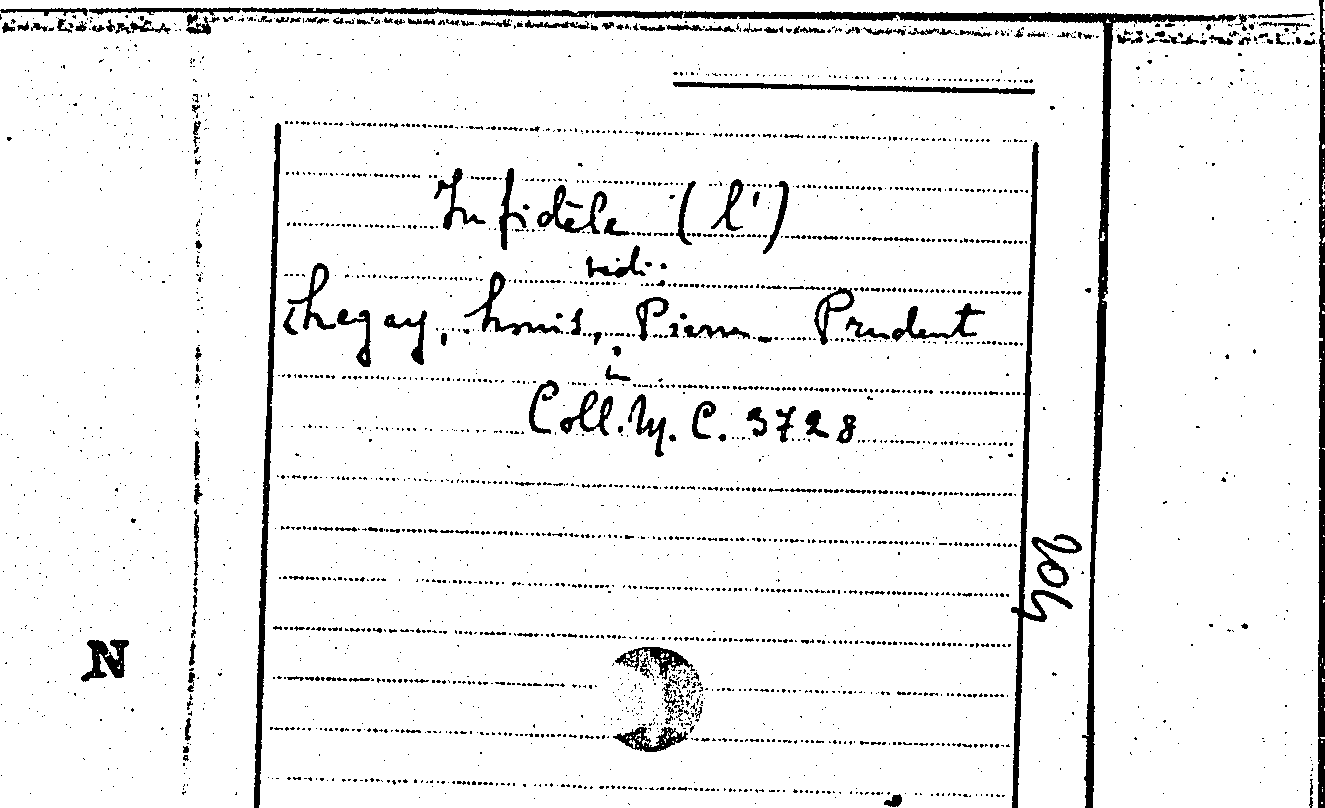 Infidèle (l')
vid:
Legay, Louis, Pierre Prudent
in
Coll. My. C. 3728
N